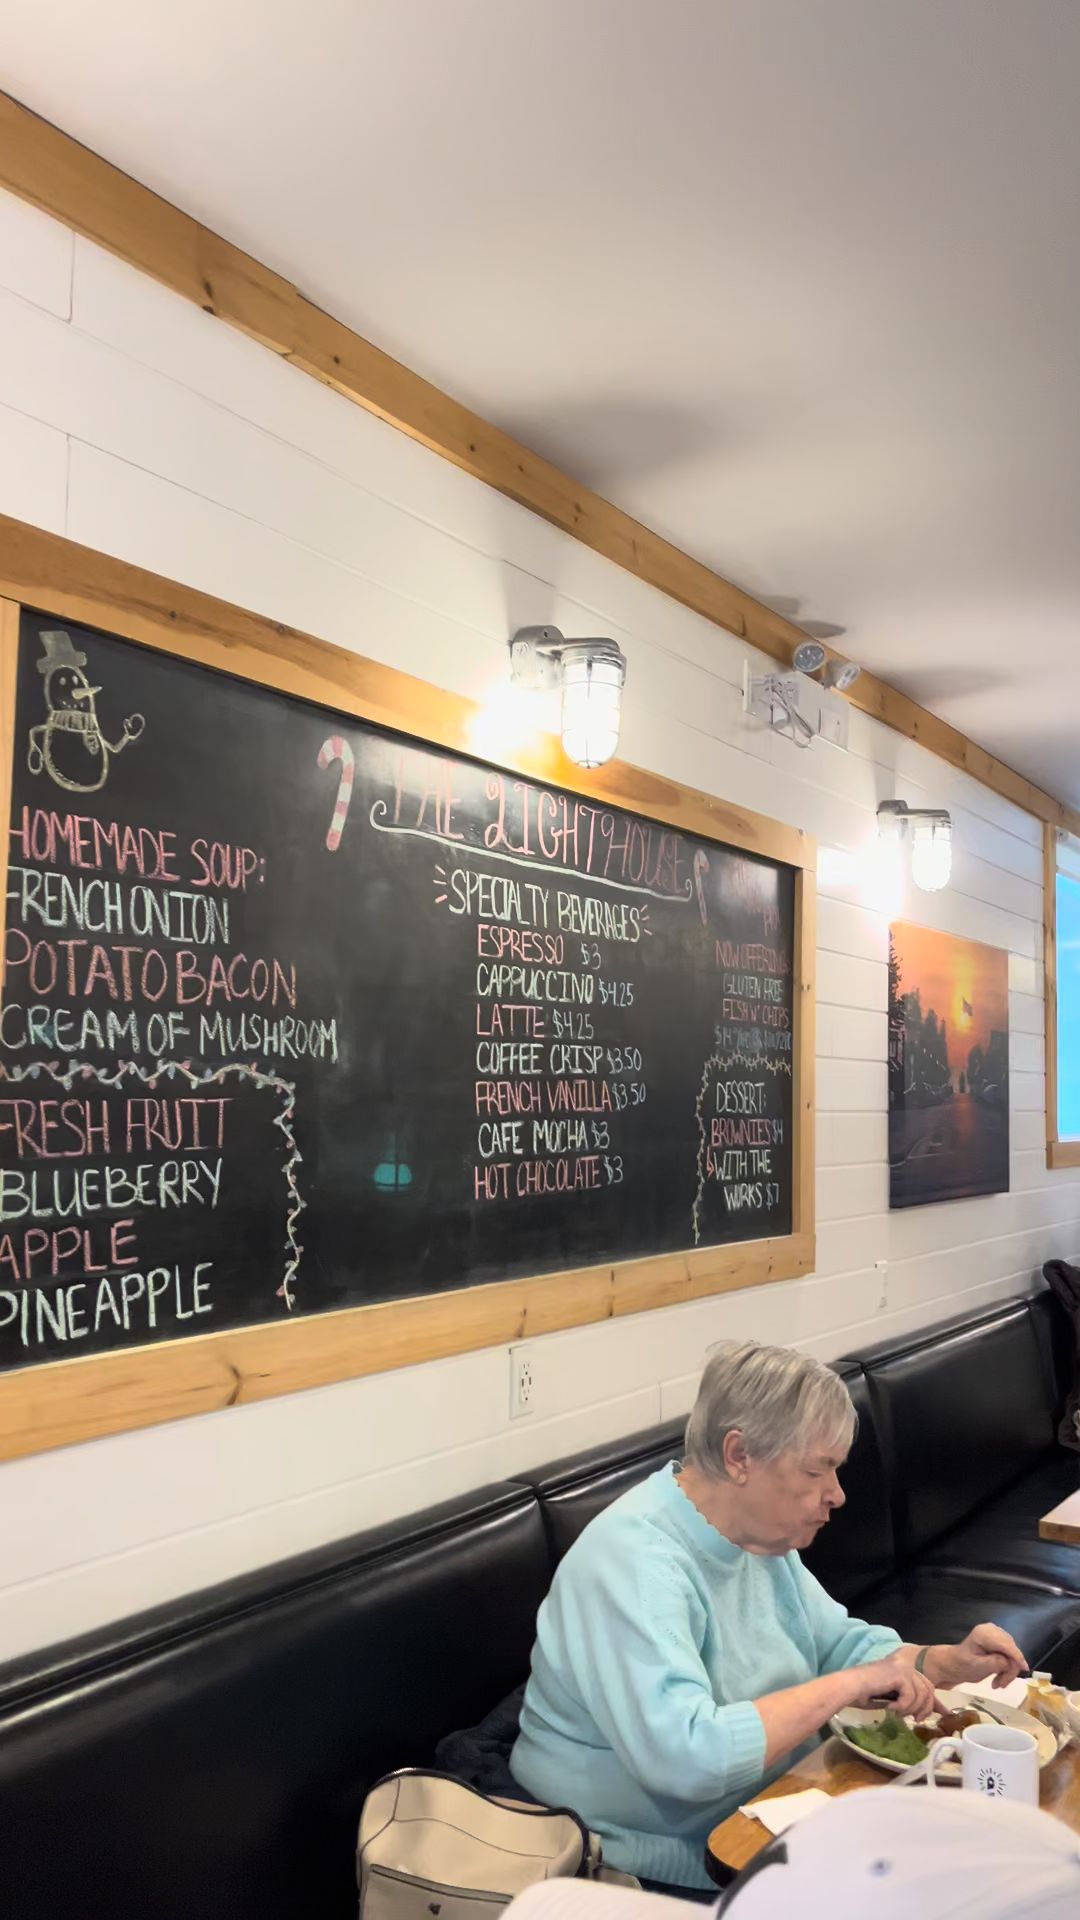 HOMEMADE SOUP:
FRENCH ONION
POTATO BACON
CREAM OF MUSHROOM
FRESH FRUIT
BLUEBERRY
APPLE
PINEAPPLE
THE LIGHTHOUSE
SPECIALTY BEVERAGES
ESPRESSO $3
CAPPUCCINO $4.25
LATTE $4.25
COFFEE CRISP $3.50
FRENCH VANILLA $3.50
CAFE MOCHA $3
HOT CHOCOLATE $3
NOW OFFERING
GLUTEN FREE
FISH N' CHIPS
DESSERT:
BROWNIES $4
WITH THE
WORKS $7